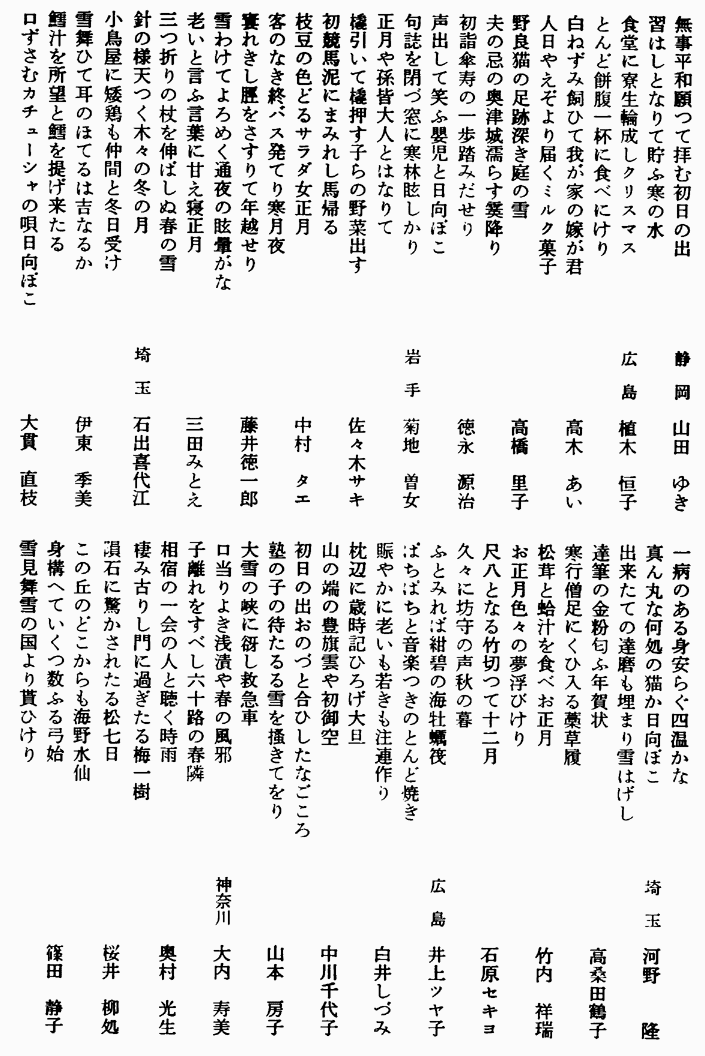 無事平和願つて拝む初日の出
習はしとなりて貯ふ寒の水
静岡 山田 ゆき
食堂に寮生輪成しクリスマス
とんど餅腹一杯に食べにけり
広島 植木 恒子
白ねずみ飼ひて我が家の嫁が君
人日やえぞより届くミルク菓子
高木 あい
野良猫の足跡深き庭の雪
夫の忌の奥津城濡らす霙降り
高橋 里子
初詣傘寿の一歩踏みだせり
声出して笑ふ嬰児と日向ぼこ
徳永 源治
句誌を閉づ窓に寒林眩しかり
正月や孫皆大人とはなりて
岩手 菊地 曽女
橇引いて橇押す子らの野菜出す
初競馬泥にまみれし馬帰る
佐々木サキ
枝豆の色どるサラダ女正月
客のなき終バス発てり寒月夜
中村 タエ
寠れきし脛をさすりて年越せり
雪わけてよろめく通夜の眩暈がな
藤井徳一郎
老いと言ふ言葉に甘え寝正月
三つ折りの杖を伸ばしぬ春の雪
三田みとえ
針の様天つく木々の冬の月
小鳥屋に矮鶏も仲間と冬日受け
埼玉 石出喜代江
雪舞ひて耳のほてるは吉なるか
鱈汁を所望と鱈を提げ来たる
伊東 季美
口ずさむカチューシャの唄日向ぼこ
大貫 直枝
一病のある身安らぐ四温かな
真ん丸な何処の猫か日向ぼこ
埼玉 河野 隆
出来たての達磨も埋まり雪はげし
達筆の金粉匂ふ年賀状
寒行僧足にくひ入る藁草履
高桑田鶴子
松茸と蛤汁を食べお正月
お正月色々の夢浮びけり
竹内 祥瑞
尺八となる竹切つて十二月
久々に坊守の声秋の暮
石原セキヨ
ふとみれば紺碧の海牡蠣筏
ぱちぱちと音楽つきのとんど焼き
広島 井上ツヤ子
賑やかに老いも若きも注連作り
枕辺に歳時記ひろげ大旦
白井しづみ
山の端の豊旗雲や初御空
初日の出おのづと合ひしたなごころ
中川千代子
塾の子の待たるる雪を掻きてをり
大雪の峡に谺し救急車
山本 房子
口当りよき浅漬や春の風邪
子離れをすべし六十路の春隣
神奈川 大内 寿美
相宿の一会の人と聴く時雨
棲み古りし門に過ぎたる梅一樹
奥村 光生
隕石に驚かされたる松七日
この丘のどこからも海野水仙
桜井 柳処
身構へていくつ数ふる弓始
雪見舞雪の国より貰ひけり
篠田 静子